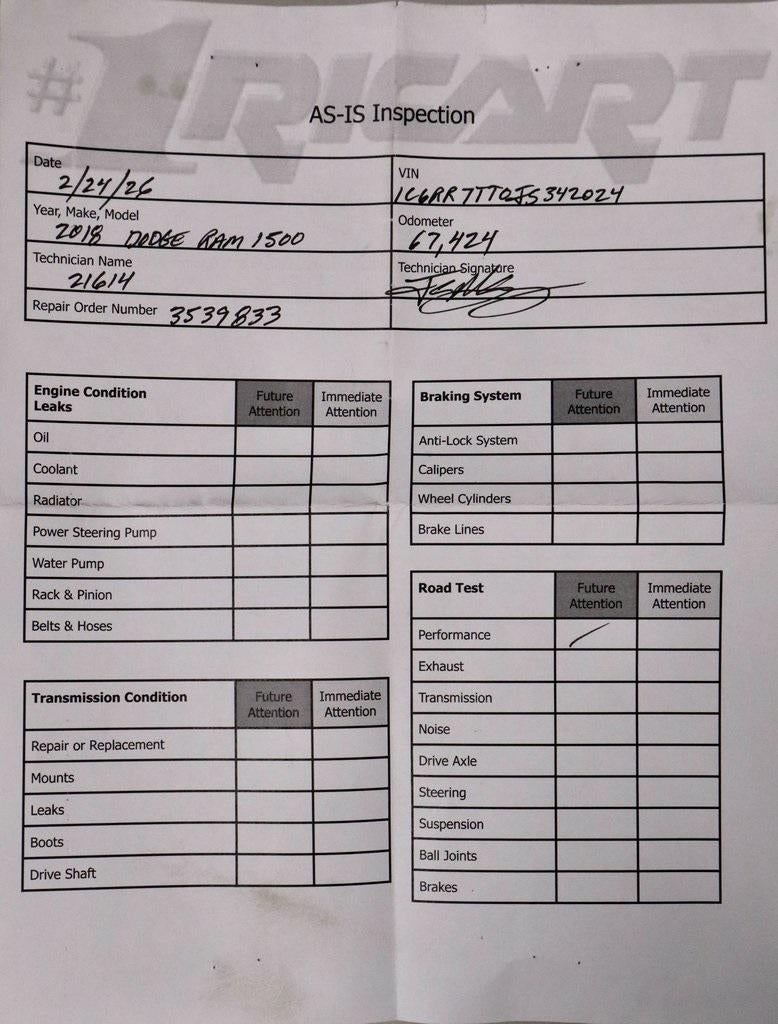 #1 RICART
AS-IS Inspection
Date
2/24/26
VIN
1C6RR7TTQJS342024
Year, Make, Model
2018 DODGE RAM 1500
Odometer
67,424
Technician Name
21614
Technician Signature
Repair Order Number 3539833
Engine Condition
Leaks
Future
Attention
Immediate
Attention
Oil
Coolant
Radiator
Power Steering Pump
Water Pump
Rack & Pinion
Belts & Hoses
Transmission Condition
Future
Attention
Immediate
Attention
Repair or Replacement
Mounts
Leaks
Boots
Drive Shaft
Braking System
Future
Attention
Immediate
Attention
Anti-Lock System
Calipers
Wheel Cylinders
Brake Lines
Road Test
Future
Attention
Immediate
Attention
Performance
Exhaust
Transmission
Noise
Drive Axle
Steering
Suspension
Ball Joints
Brakes